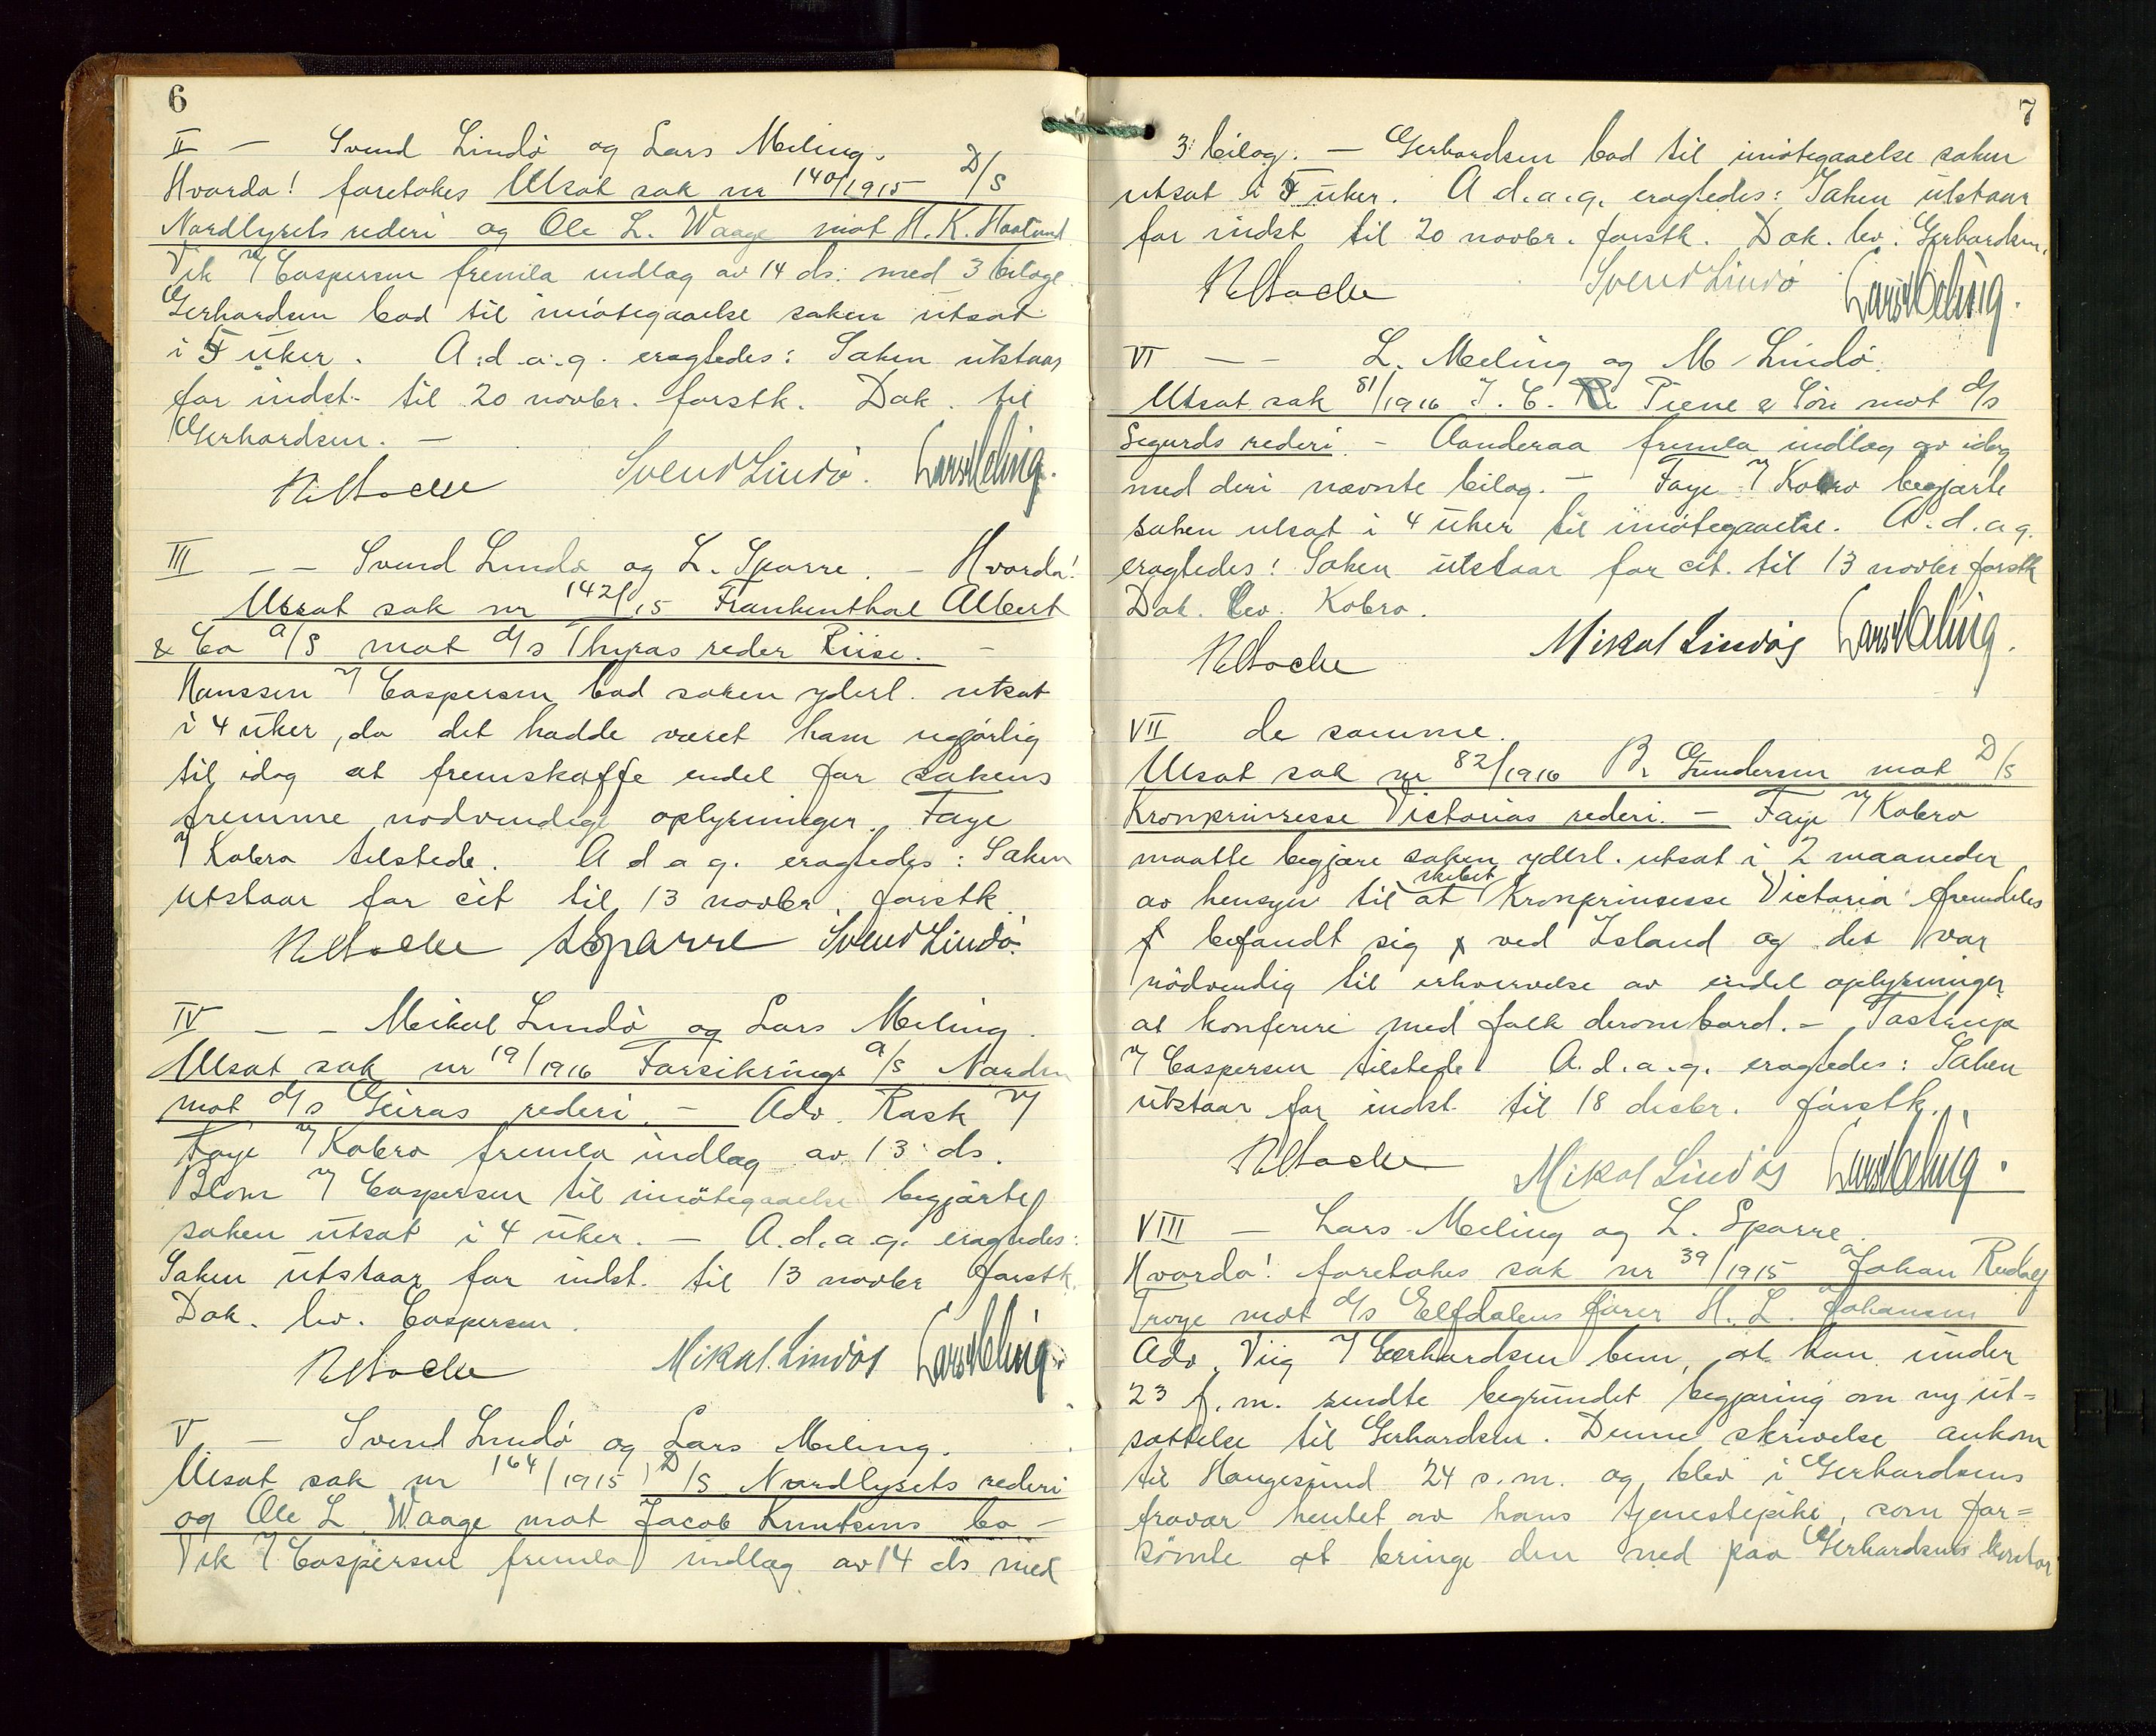 6
II — Svend Lindö og Lars Meling.
Hvorda! foretokes Utsat sak nr 140/1915 D/S
Nordlysets rederi og Ole L. Waage mot H. K. Hootund
Vik v/ Caspersen fremla indlæg av 14 ds. med 3 bilage.
Gerhardsen bad til imötegaaelse saken utsat
i 5 uker. A. d. a. g. eragtedes: Saken utstaar
for indst. til 20 novbr. förstk. Dok. til
Gerhardsen. —
Svend Lindö. Lars Meling.
III — — Svend Lindö og L. Sparre. — Hvorda!
Utsat sak nr 142/15 Frankenthal Albert
& Co A/S mot d/s Thyras reder Riise. —
Hanssen v/ Caspersen bad saken yderl. utsat
i 4 uker, da det hadde været ham ugjörlig
til idag at fremskaffe endel for sakens
fremme nödvendige oplysninger. Faye
v/ Kobro tilstede. A d a g. eragtedes: Saken
utstaar for cit til 13 novbr. förstk.
L Sparre Svend Lindö.
IV — — Mikal Lindö og Lars Meling.
Utsat sak nr 19/1916 Forsikrings A/S Norden
mot d/s Geiras rederi. — Adv. Rask v/
Faye v/ Kobro fremla indlæg av 13 ds.
Blom v/ Caspersen til imötegaaelse begjærte
saken utsat i 4 uker. — A. d. a. g. eragtedes:
Saken utstaar for indst. til 13 novbr förstk.
Dok. lev. Caspersen.
Mikal Lindöy Lars Meling.
V — Svend Lindö og Lars Meling.
Utsat sak nr 164/1915, D/S Nordlysets rederi
og Ole L. Waage mot Jacob Knutsens bo —
Vik v/ Caspersen fremla indlæg av 14 ds med
7
3 bilag. — Gerhardsen bad til imötegaaelse saken
utsat i 5 uker. A d. a. g. eragtedes: Saken utstaar
for indst til 20 novbr. förstk. Dok. lev. Gerhardsen.
Svend Lindö Lars Meling.
VI — — L. Meling og M Lindö.
Utsat sak 81/1916 I. C. Piene & Sön mot d/s
Sigurds rederi. — Aanderaa fremla indlæg av idag
med deri nævnte bilag. — Faye v/ Kobro begjærte
saken utsat i 4 uker til imötegaaelse. A. d. a g.
eragtedes: Saken utstaar for cit. til 13 novbr förstk
Dok. lev. Kobro.
Mikal Lindöy Lars Meling.
VII de samme.
Utsat sak nr 82/1916 B. Gundersen mot D/S
Kronprinsesse Victorias rederi. — Faye v/ Kobro
maatte begjære saken yderl. utsat i 2 maaneder
av hensyn til at skibet Kronprinsesse Victoria fremdeles
befandt sig ved Island og det var
nödvendig til erhvervelse av endel oplysninger
at konferere med folk derombord. — Tastrup
v/ Caspersen tilstede. A. d. a. g. eragtedes: Saken
utstaar for indst. til 18 decbr. förstk.
Mikal Lindöy Lars Meling.
VIII — Lars Meling og L. Sparre.
Hvorda! foretokes sak nr 39/1915 Johan Rudolf
Troye mot d/s Elfdalens förer H. L. Johansen
Adv. Viig v/ Gerhardsen bem. at han under
23 f. m. sendte begrundet begjæring om ny ut=
sættelse til Gerhardsen. Denne skrivelse ankom
til Haugesund 24 s. m. og blev i Gerhardsens
fravær hentet av hans tjenestepike, som for=
sömte at bringe den ned paa Gerhardsens kontor